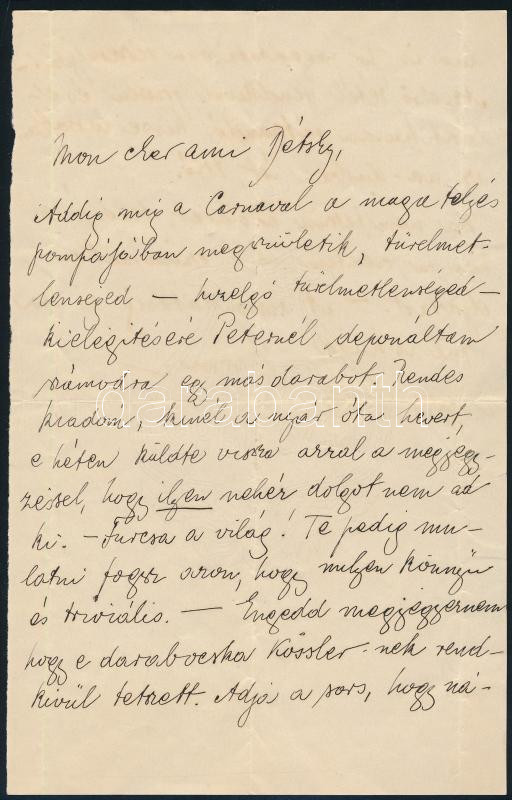 Mon cher ami Détshy,
Addig mig a Carnaval a maga teljes
pompájában megszületik, türelmet-
lenséged – hizelgő türelmetlenséged –
kielégitésére Péternél deponáltam
számodra egy más darabot. Rendes
kiadóm, kinél a nyár óta hevert,
e héten küldte vissza azzal a megjegy-
zéssel, hogy ilyen nehéz dolgot nem ad
ki. – Furcsa a világ! Te pedig mu-
latni fogsz azon, hogy milyen könnyü
és triviális. – Engedd megjegyeznem
hogy e darabocska Kössler-nek rend-
kivül tetszett. Adja a sors, hogy ná-
darabanth